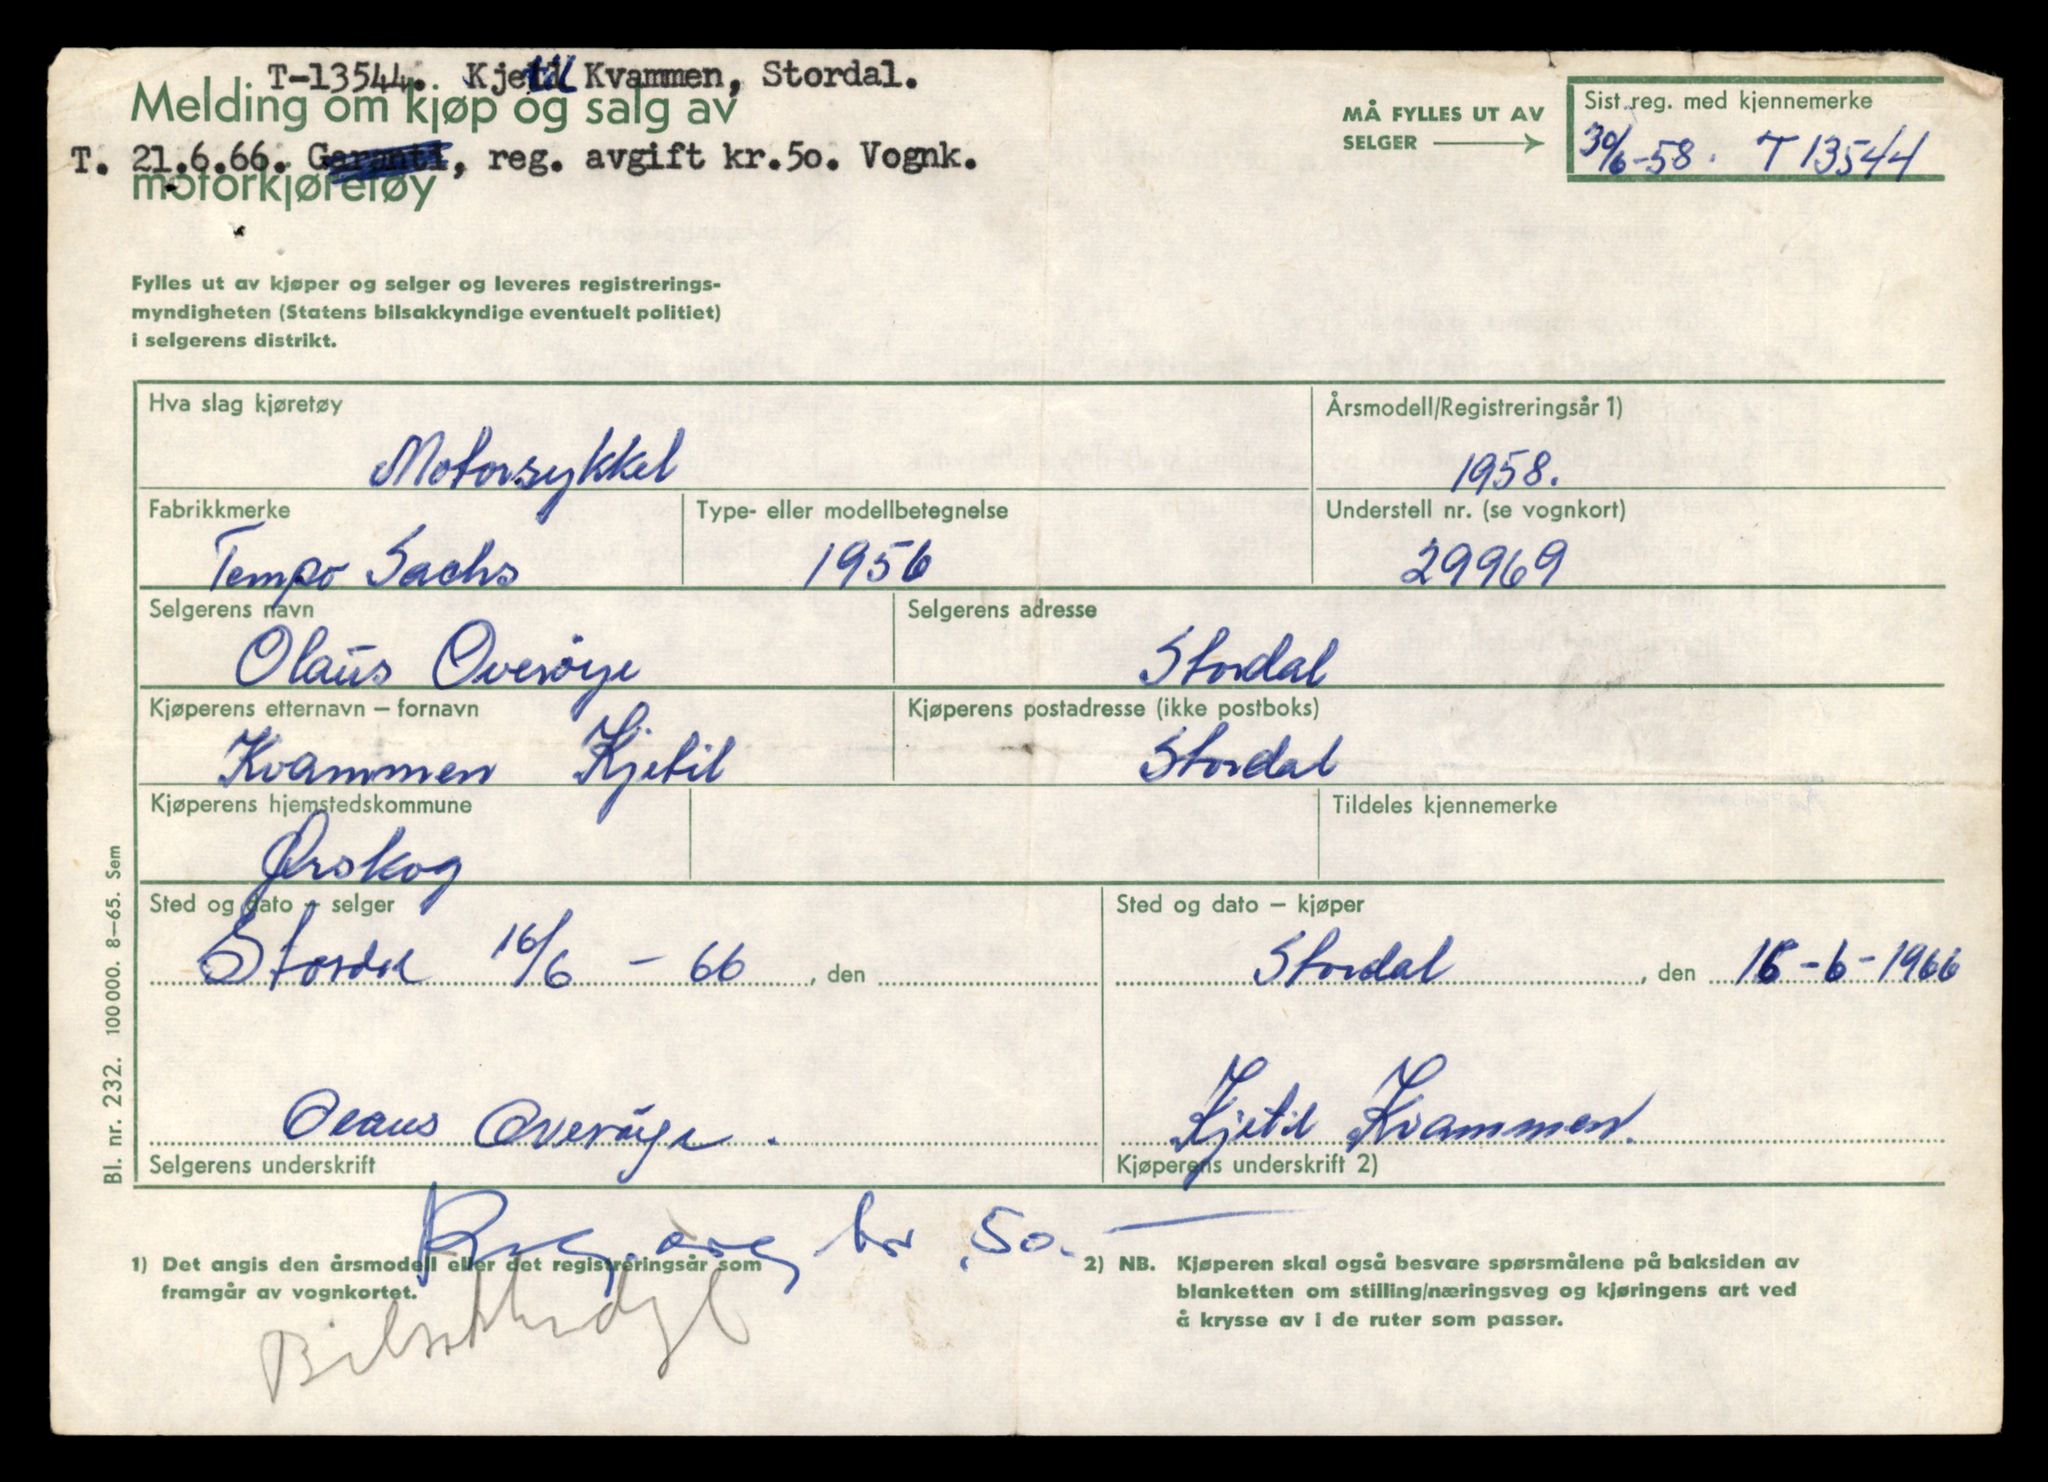 T-13544. Kjetil Kvammen, Stordal.
Melding om kjøp og salg av
T. 21.6.66. Garanti, reg. avgift kr.50. Vognk.
motorkjøretøy
MÅ FYLLES UT AV
SELGER
Sist reg. med kjennemerke
30/6-58. T 13544
Fylles ut av kjøper og selger og leveres registrerings-
myndigheten (Statens bilsakkyndige eventuelt politiet)
i selgerens distrikt.
Hva slag kjøretøy
Motorsykkel
Årsmodell/Registreringsår 1)
1958.
Fabrikkmerke
Tempo Sachs
Type- eller modellbetegnelse
1956
Understell nr. (se vognkort)
29969
Selgerens navn
Olaus Overøye
Selgerens adresse
Stordal
Kjøperens etternavn – fornavn
Kvammen Kjetil
Kjøperens postadresse (ikke postboks)
Stordal
Kjøperens hjemstedskommune
Ørskog
Tildeles kjennemerke
Sted og dato – selger
Stordal 16/6 - 66, den
Sted og dato – kjøper
Stordal, den 16-6-1966
Olaus Overøye.
Selgerens underskrift
Kjetil Kvammen.
Kjøperens underskrift 2)
Reg. avg kr 50.—
1) Det angis den årsmodell eller det registreringsår som
framgår av vognkortet.
2) NB. Kjøperen skal også besvare spørsmålene på baksiden av
blanketten om stilling/næringsveg og kjøringens art ved
å krysse av i de ruter som passer.
Bl. nr. 232. 100 000. 8–65. Sem